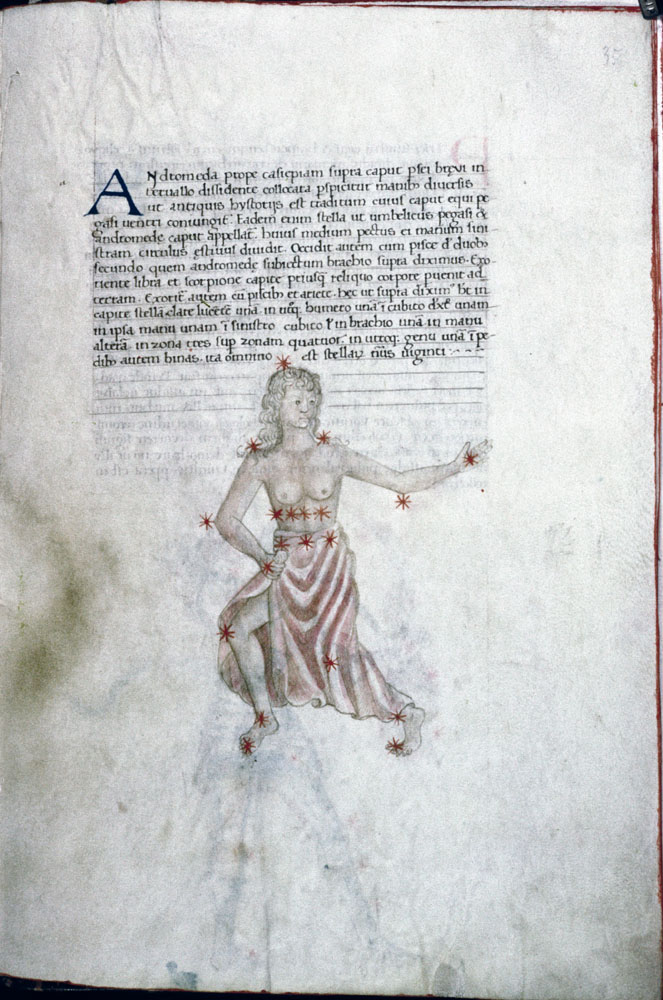 35
ANdromeda prope casiepiam supra caput psei brevi in
tervallo dissidente collocata pspicitur manib diversis
ut antiquis hystorijs est traditum cuius caput equi pe
gasi ventri coniungit. Eadem enim stella ut umbelicus pegasi &
andromede caput appellat. huius medium pectus et manum sini
stram circulus estivus dividit. Occidit autem cum pisce d duob
secundo quem andromede subiectum brachio supra diximus. Exo
riente libra et scorpione capite priusq reliquo corpore puenit ad
terram. Exorit autem cu piscib et ariete. hec ut supra dixim ht in
capite stellā clare lucētē unā. in utroq humero unā i cubito dext unam
in ipsa manu unam i sinistro cubito in brachio unā in manu
alterā. in zona tres sup zonam quatuor. in utroq genu unā i pe
dib autem binas. ita omnino est stellar viginti